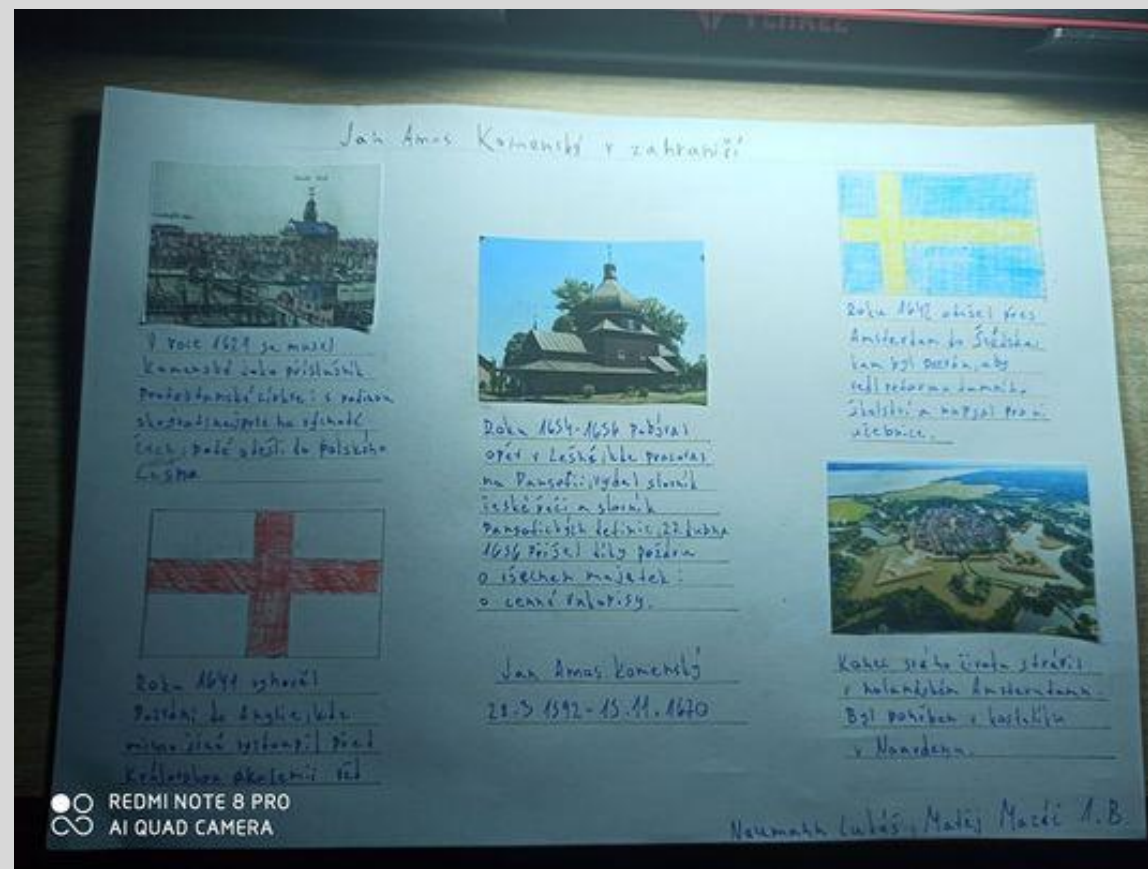 Jan Amos Komenský v zahraničí
V roce 1621 se musel
Komenský jako příslušník
Protestantské církve i s rodinou
skrývat nejprve na východě
Čech, poté odešli do polského
Lešna
Roku 1641 vyhověl
Pozvání do Anglie, kde
mimo jiné vystoupil před
Královskou akademií věd
Roku 1654-1656 pobýval
opět v Lešně, kde pracoval
na Pansofii, vydal slovník
české řeči a slovník
Pansofických definic, 27. dubna
1656 Přišel díky požáru
o všechen majetek i
o cenné rukopisy.
Jan Amos Komenský
28.3 1592 - 15.11.1670
Roku 1642 odišel přes
Amsterdam do Švédska,
kam byl pozván, aby
vedl reformu tamního
školství a napsal pro ni
učebnice.
Konec svého života strávil
v holandském Amsterdamu.
Byl pohřben v kostelíku
v Naardenu.
Neumann Lukáš, Matěj 1.B
REDMI NOTE 8 PRO
AI QUAD CAMERA